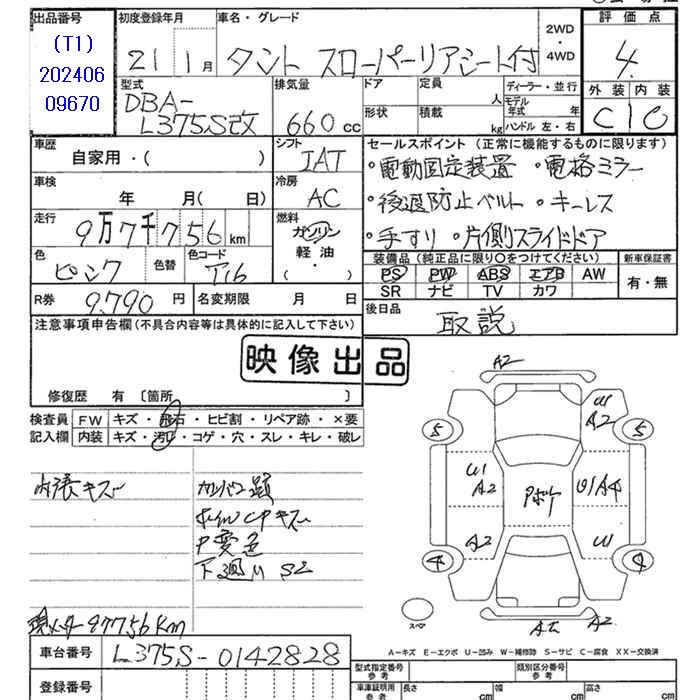 出品番号
(T1)
202406
09670
初度登録年月
21年1月
車名・グレード
タント スローパーリアシート付
2WD
・
4WD
評価点
4
外装 内装
C C
型式
DBA-
L375S改
排気量
660cc
ドア
形状
定員
人
積載
kg
ディーラー・並行
モデル年式 年
ハンドル 左・右
車歴
自家用・( )
シフト
IAT
車検
年 月( 日)
冷房
AC
走行
9万7千756km
燃料
ガソリン
軽油
・( )
色
ピンク
色替
色コード
T16
R券
9,790円
名変期限 月 日
セールスポイント(正常に機能するものに限ります)
・電動固定装置 ・電格ミラー
・後退防止ベルト ・キーレス
・手すり ・片側スライドドア
装備品(純正品に限り○をつけてください)
新車保証書
PS PW ABS エアB AW
SR ナビ TV カワ
有・無
後日品
取説
注意事項申告欄(不具合内容等は具体的に記入して下さい)
映像出品
修復歴 有〔箇所 〕
検査員
記入欄
FW キズ・飛石・ヒビ割・リペア跡・×要
内装 キズ・汚れ・コゲ・穴・スレ・キレ・破レ
内張キズ
カンバン跡
ホイルCPキズ
P変色
下廻りS2
現メーター97756Km
A2
U1
A2
5
5
U1
A2
Pボケ
U1A4
A2
U1
4
4
スペア
A2
A-キズ E-エクボ U-凹ミ W-補修跡 S-サビ C-腐食 XX-交換済
車台番号
L375S-0142828
登録番号
型式指定番号
参考
類別区分番号
参考
車庫証明用
参考
長さ cm
幅 cm
高さ cm